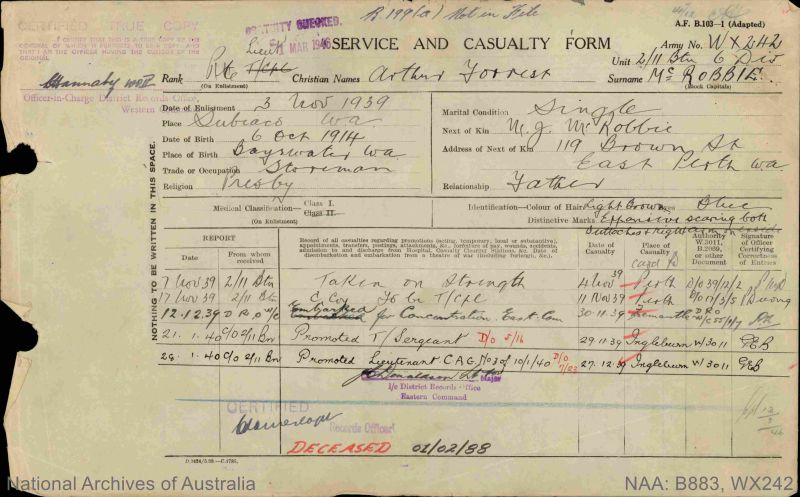 CERTIFIED TRUE COPY
B. 199(a) Not in File
A.F. B.103—1 (Adapted)
MAR 1946
SERVICE AND CASUALTY FORM
Army No. WX242
Unit 2/11 Btn 6 Div
Lieut
Rank Pte T/CPL Christian Names Arthur Forrest Surname McROBBIE
(On Enlistment) (Block Capitals)
Officer-in-Charge District Records Office
Western
NOTHING TO BE WRITTEN IN THIS SPACE.
Date of Enlistment 3 Nov 1939
Place Subiaco Wa
Date of Birth 6 Oct 1914
Place of Birth Bayswater Wa
Trade or Occupation Storeman
Religion Presby
Marital Condition Single
Next of Kin N. J. McRobbie
Address of Next of Kin 119 Brown St
East Perth Wa
Relationship Father
Medical Classification Class I.
(On Enlistment) Class II.
Identification—Colour of Hair Light Brown Eyes Blue
Distinctive Marks Extensive scaring both
buttockes & right arm
REPORT
Date From whom received
Record of all casualties regarding promotions (acting, temporary, local or substantive), appointments, transfers, postings, attachments, &c., forfeiture of pay, wounds, accidents, admission to and discharge from Hospital, Casualty Clearing Stations, &c. Date of disembarkation and embarkation from a theatre of war (including furlough, &c.).
Date of Casualty
Place of Casualty
Authority W.3011, B.2069, or other Document
Signature of Officer Certifying Correctness of Entries
7 Nov 39 2/11 Btn Taken on Strength 4 Nov 39 Perth 2/0 39/12/2
17 Nov 39 2/11 Btn C Coy To be T/CPL 11 Nov 39 Perth
12.12.39 D R O W/C Embarked for Concentration East. Com 30.11.39 Fremantle DRO
21. 1. 40 c/o 2/11 Bn Promoted T/Sergeant D/O 5/16 29.11.39 Ingleburn W3011 GEB
29. 1. 40 c/o 2/11 Bn Promoted Lieutenant C.A.G. No 3 of 10/1/40 D/O 7/23 27.12.39 Ingleburn W3011 GEB
Major
i/c District Records Office
Eastern Command
CERTIFIED
Records Officer
DECEASED 01/02/88
National Archives of Australia
NAA: B883, WX242